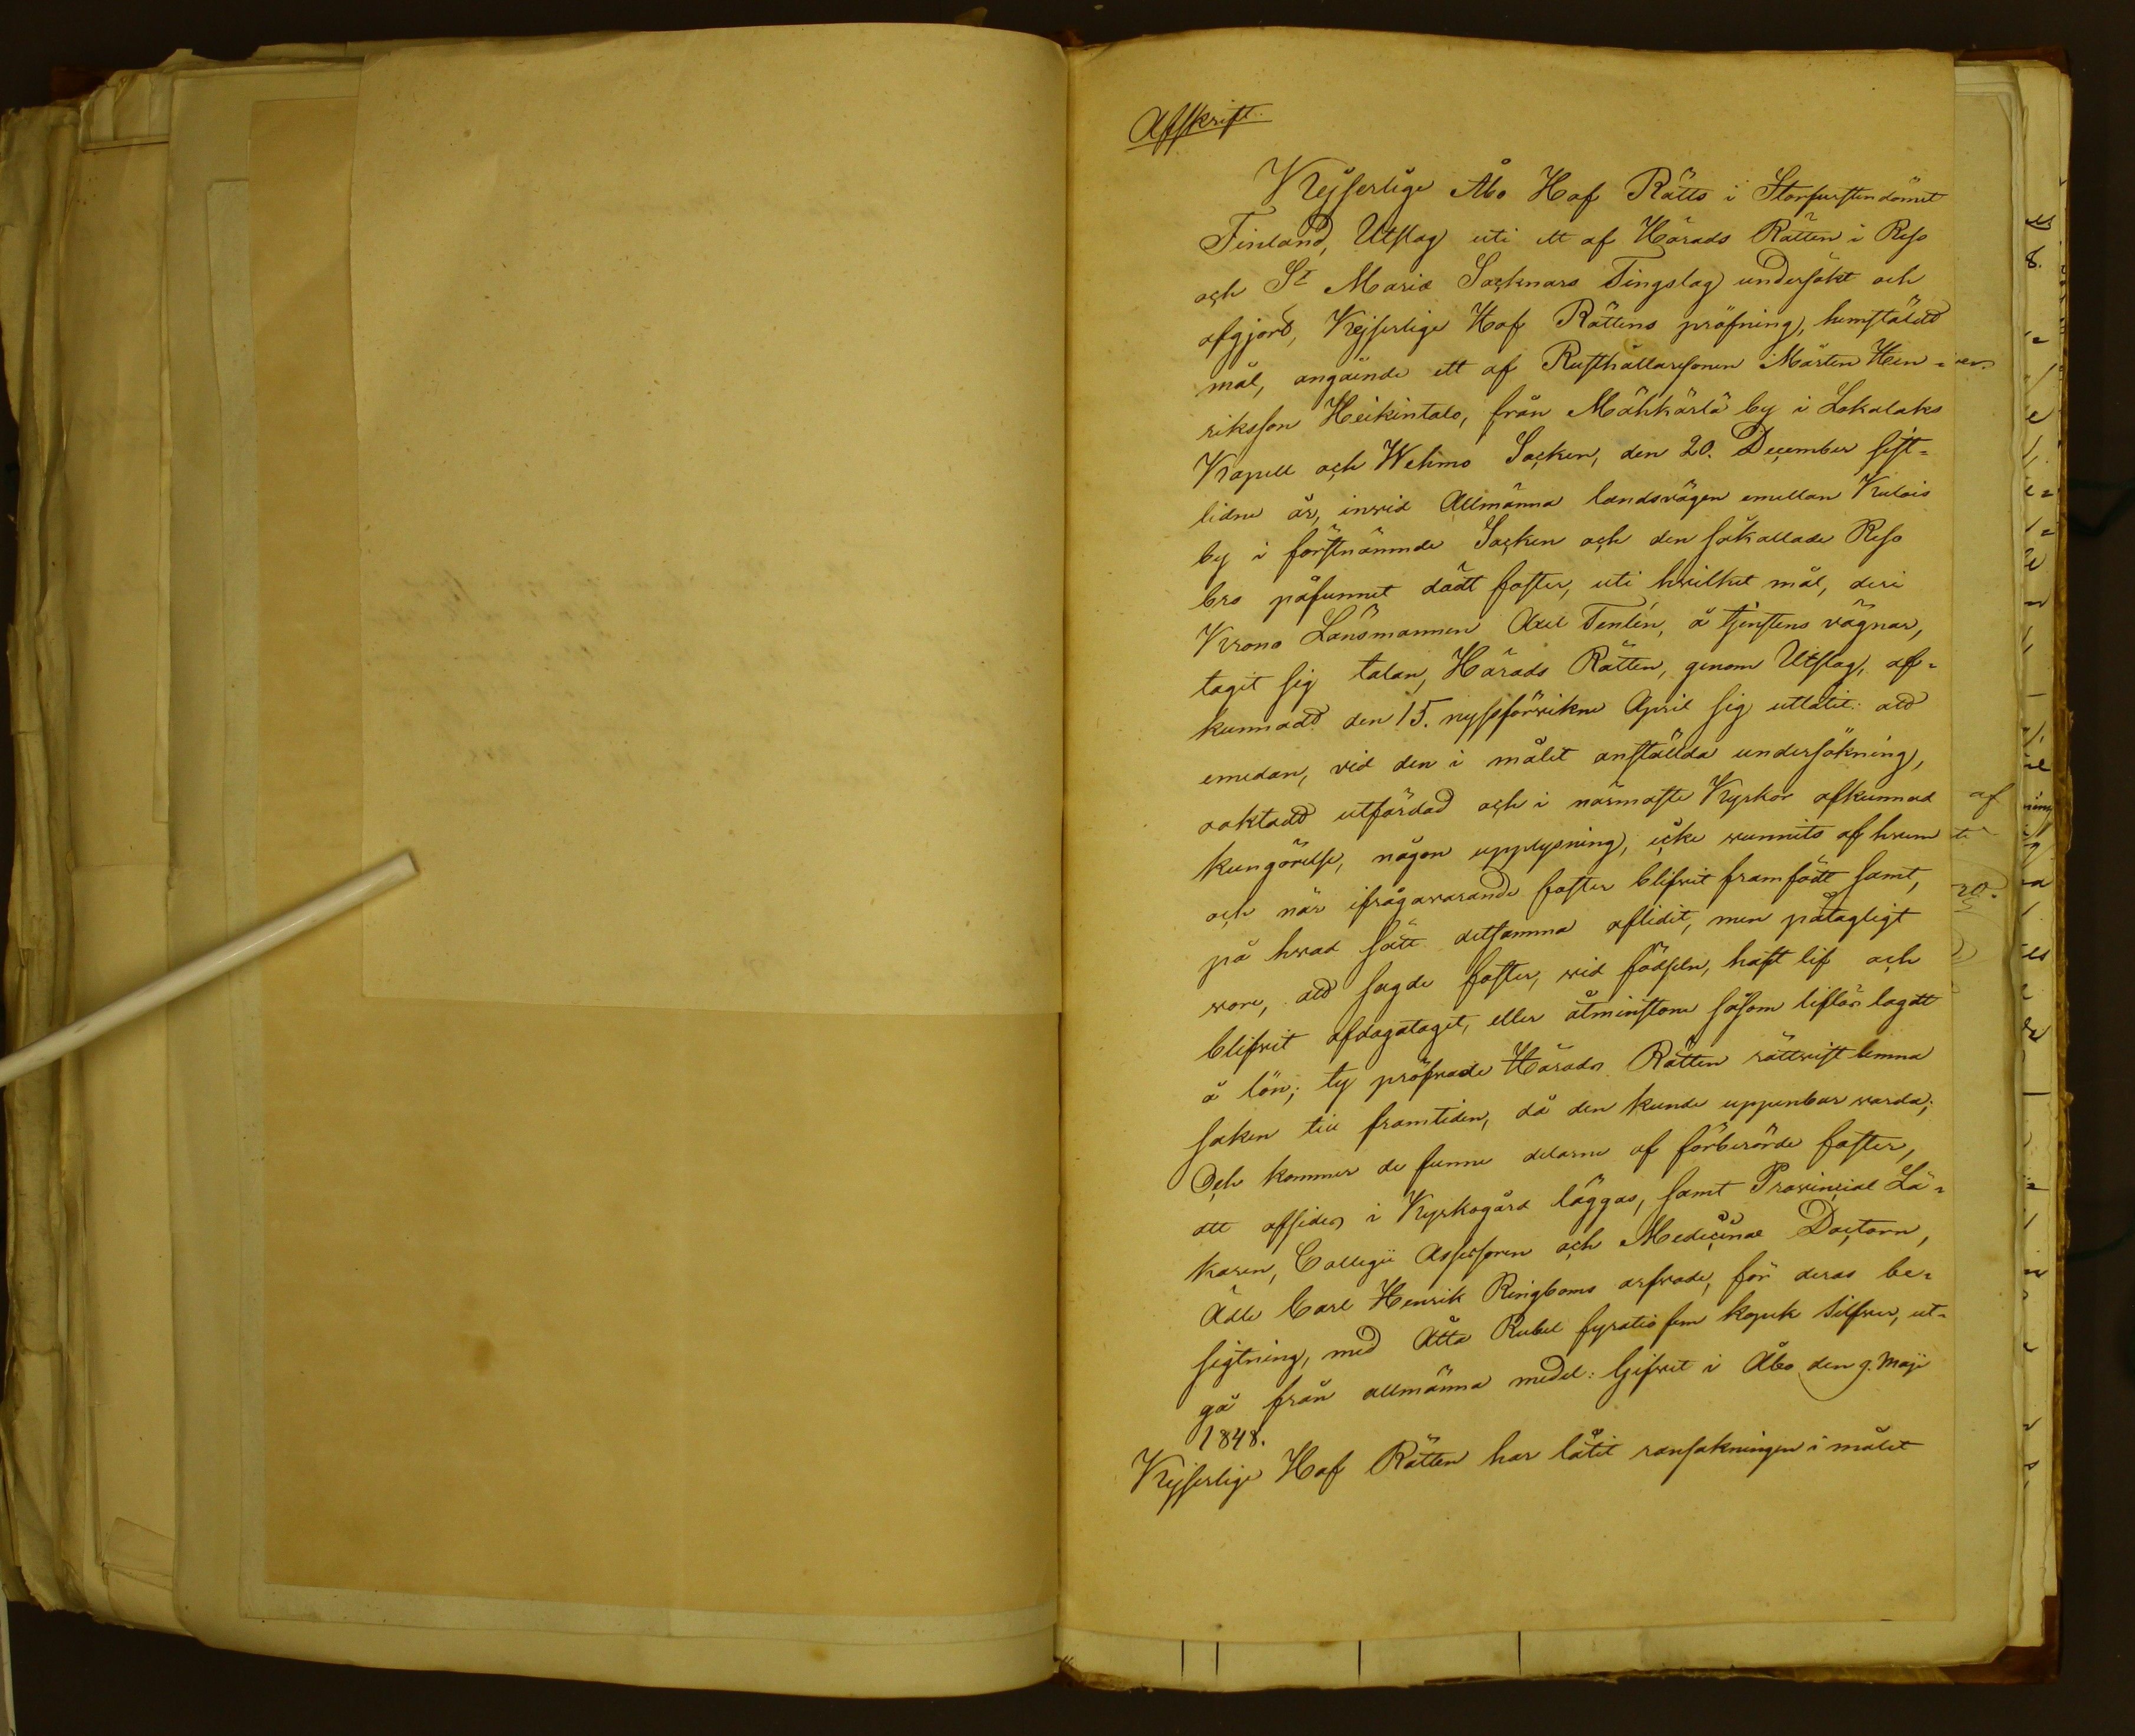 Afskrift.
Kejserlige Åbo Hof Rätts i Storfurstendömet
Finland, Utslag uti ett af Härads Rätten i Reso
och St Mariæ Socknars Tingslag undersökt och
afgjord, Kejserlige Hof Rättens pröfning, hemstäldt
mål, angående ett af Rusthållaresonen Mårten Hen-
riksson Heikintalo, från Mähkärlä by i Lokalaks
Kapell och Wehmo Socken, den 20. December sist-
lidne år, invid Allmänna landsvägen emellan Kulois
by i förstnämnde Socken och den såkallade Reso
bro påfunnet dödt foster, uti hvilket mål, deri
Krono Länsmannen Axel Tenlén, å tjenstens vägnar,
tagit sig talan, Härads Rätten, genom Utslag, af-
kunnadt den 15. nyssförvikne April sig utlåtit: att
emedan, vid den i målet anställda undersökning,
oaktadt utfärdad och i närmaste Kyrkor afkunnad
kungörelse, någon upplysning, icke vunnits af hvem
och när ifrågavarande foster blifvit framfödt samt,
på hvad sätt detsamma aflidit, men påtagligt
vore, att sagde foster, vid födseln, haft lif och
blifvit afdagataget, eller åtminstone såsom liflöst lagdt
å lön; ty pröfvade Härads Rätten rättvist lemna
saken till framtiden, då den kunde uppenbar varda;
Och kommer de funne delarne af förberörde foster,
att afsides i Kyrkogård läggas, samt Provincial Lä-
karen, Collegii Assessoren och Medicinæ Doctorn,
Ädle Carl Henrik Ringboms arfvode, för deras be-
sigtning, med Åtta Rubel fyratiofem kopek Silfver, ut-
gå från allmänna medel: Gifvet i Åbo den 9. Maji
1848.
Kejserlige Hof Rätten har låtit ransakningen i målet